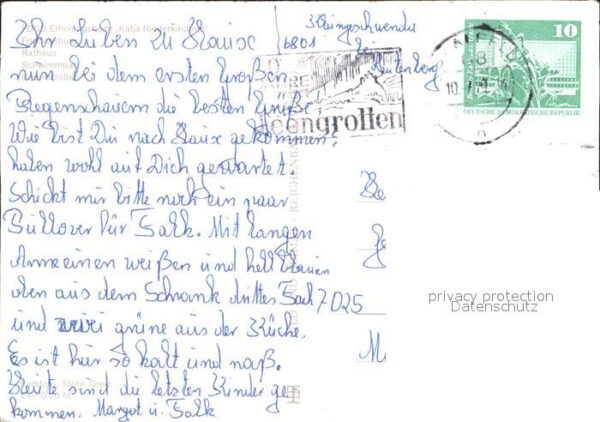 Ihr Lieben zu Hause
nun bei dem ersten großen
Regenschauern die besten Grüße
Wie bist Du nach Hause gekommen?
haben wohl auf Dich gewartet.
Schickt mir bitte noch ein paar
Pullover für Falk. Mit langen
Arme einen weißen und hellblauen
oben aus dem Schrank drittes Fach
und zwei grüne aus der Küche.
Es ist hier so kalt und naß.
Heute sind die letzten Kinder ge
kommen. Margot u. Falk
6801
Feengrotten
10
DEUTSCHE DEMOKRATISCHE REPUBLIK
7025
M
privacy protection
Datenschutz